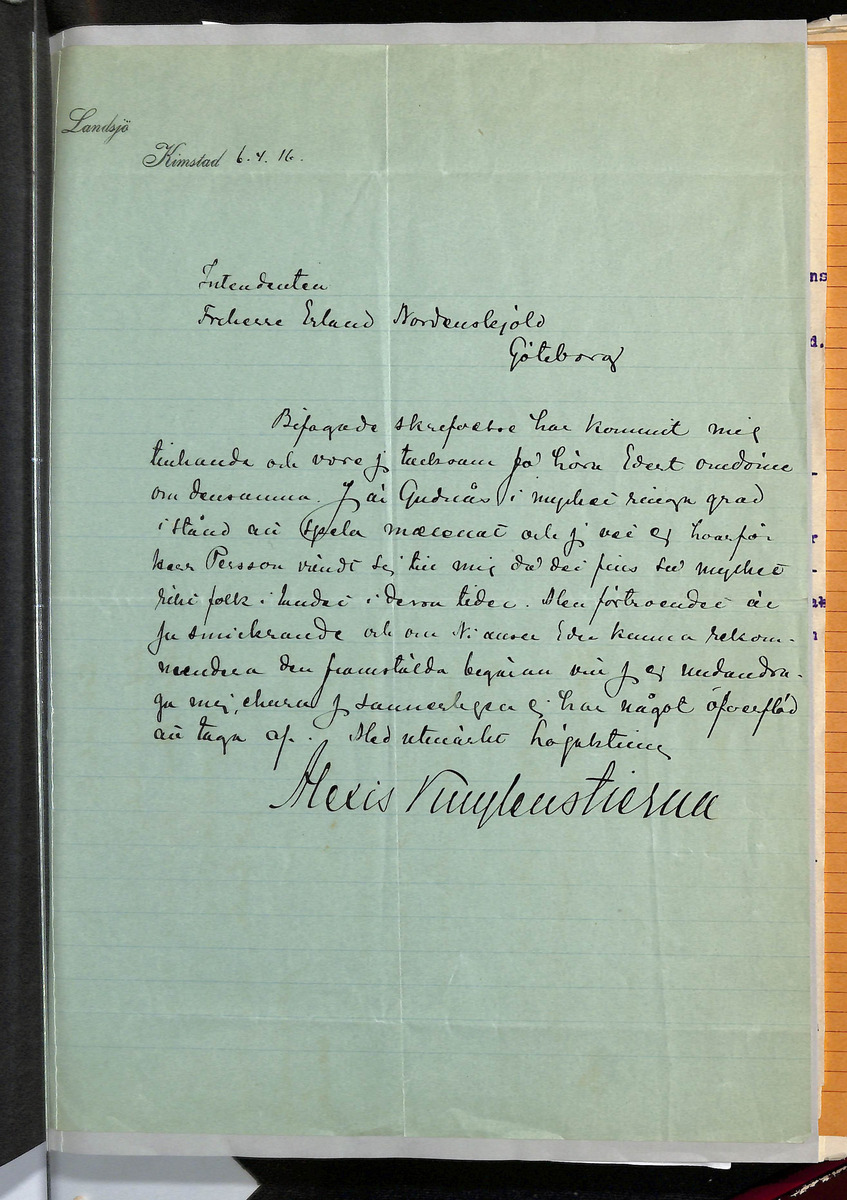 Landsjö
Kimstad 6.4.16.
Intendenten
Friherre Erland Nordenskjöld
Göteborg
Bifogade skrifvelse har kommit mig
tillhanda och vore jg tacksam få höra Edert omdöme
om densamma. Jg är Gudnås i mycket ringa grad
i stånd att spela mecenat och jg vet ej hvarför
herr Persson vändt sig till mig då det fins så mycket
rikt folk i landet i dessa tider. Men förtroendet är
ju smickrande och om Ni anser Eder kunna rekom-
mendera den framställda begäran vill jg ej undandra-
ga mig, ehuru jg sannerligen ej har något öfverflöd
att taga af. Med utmärkt högaktning
Alexis
ns
d.